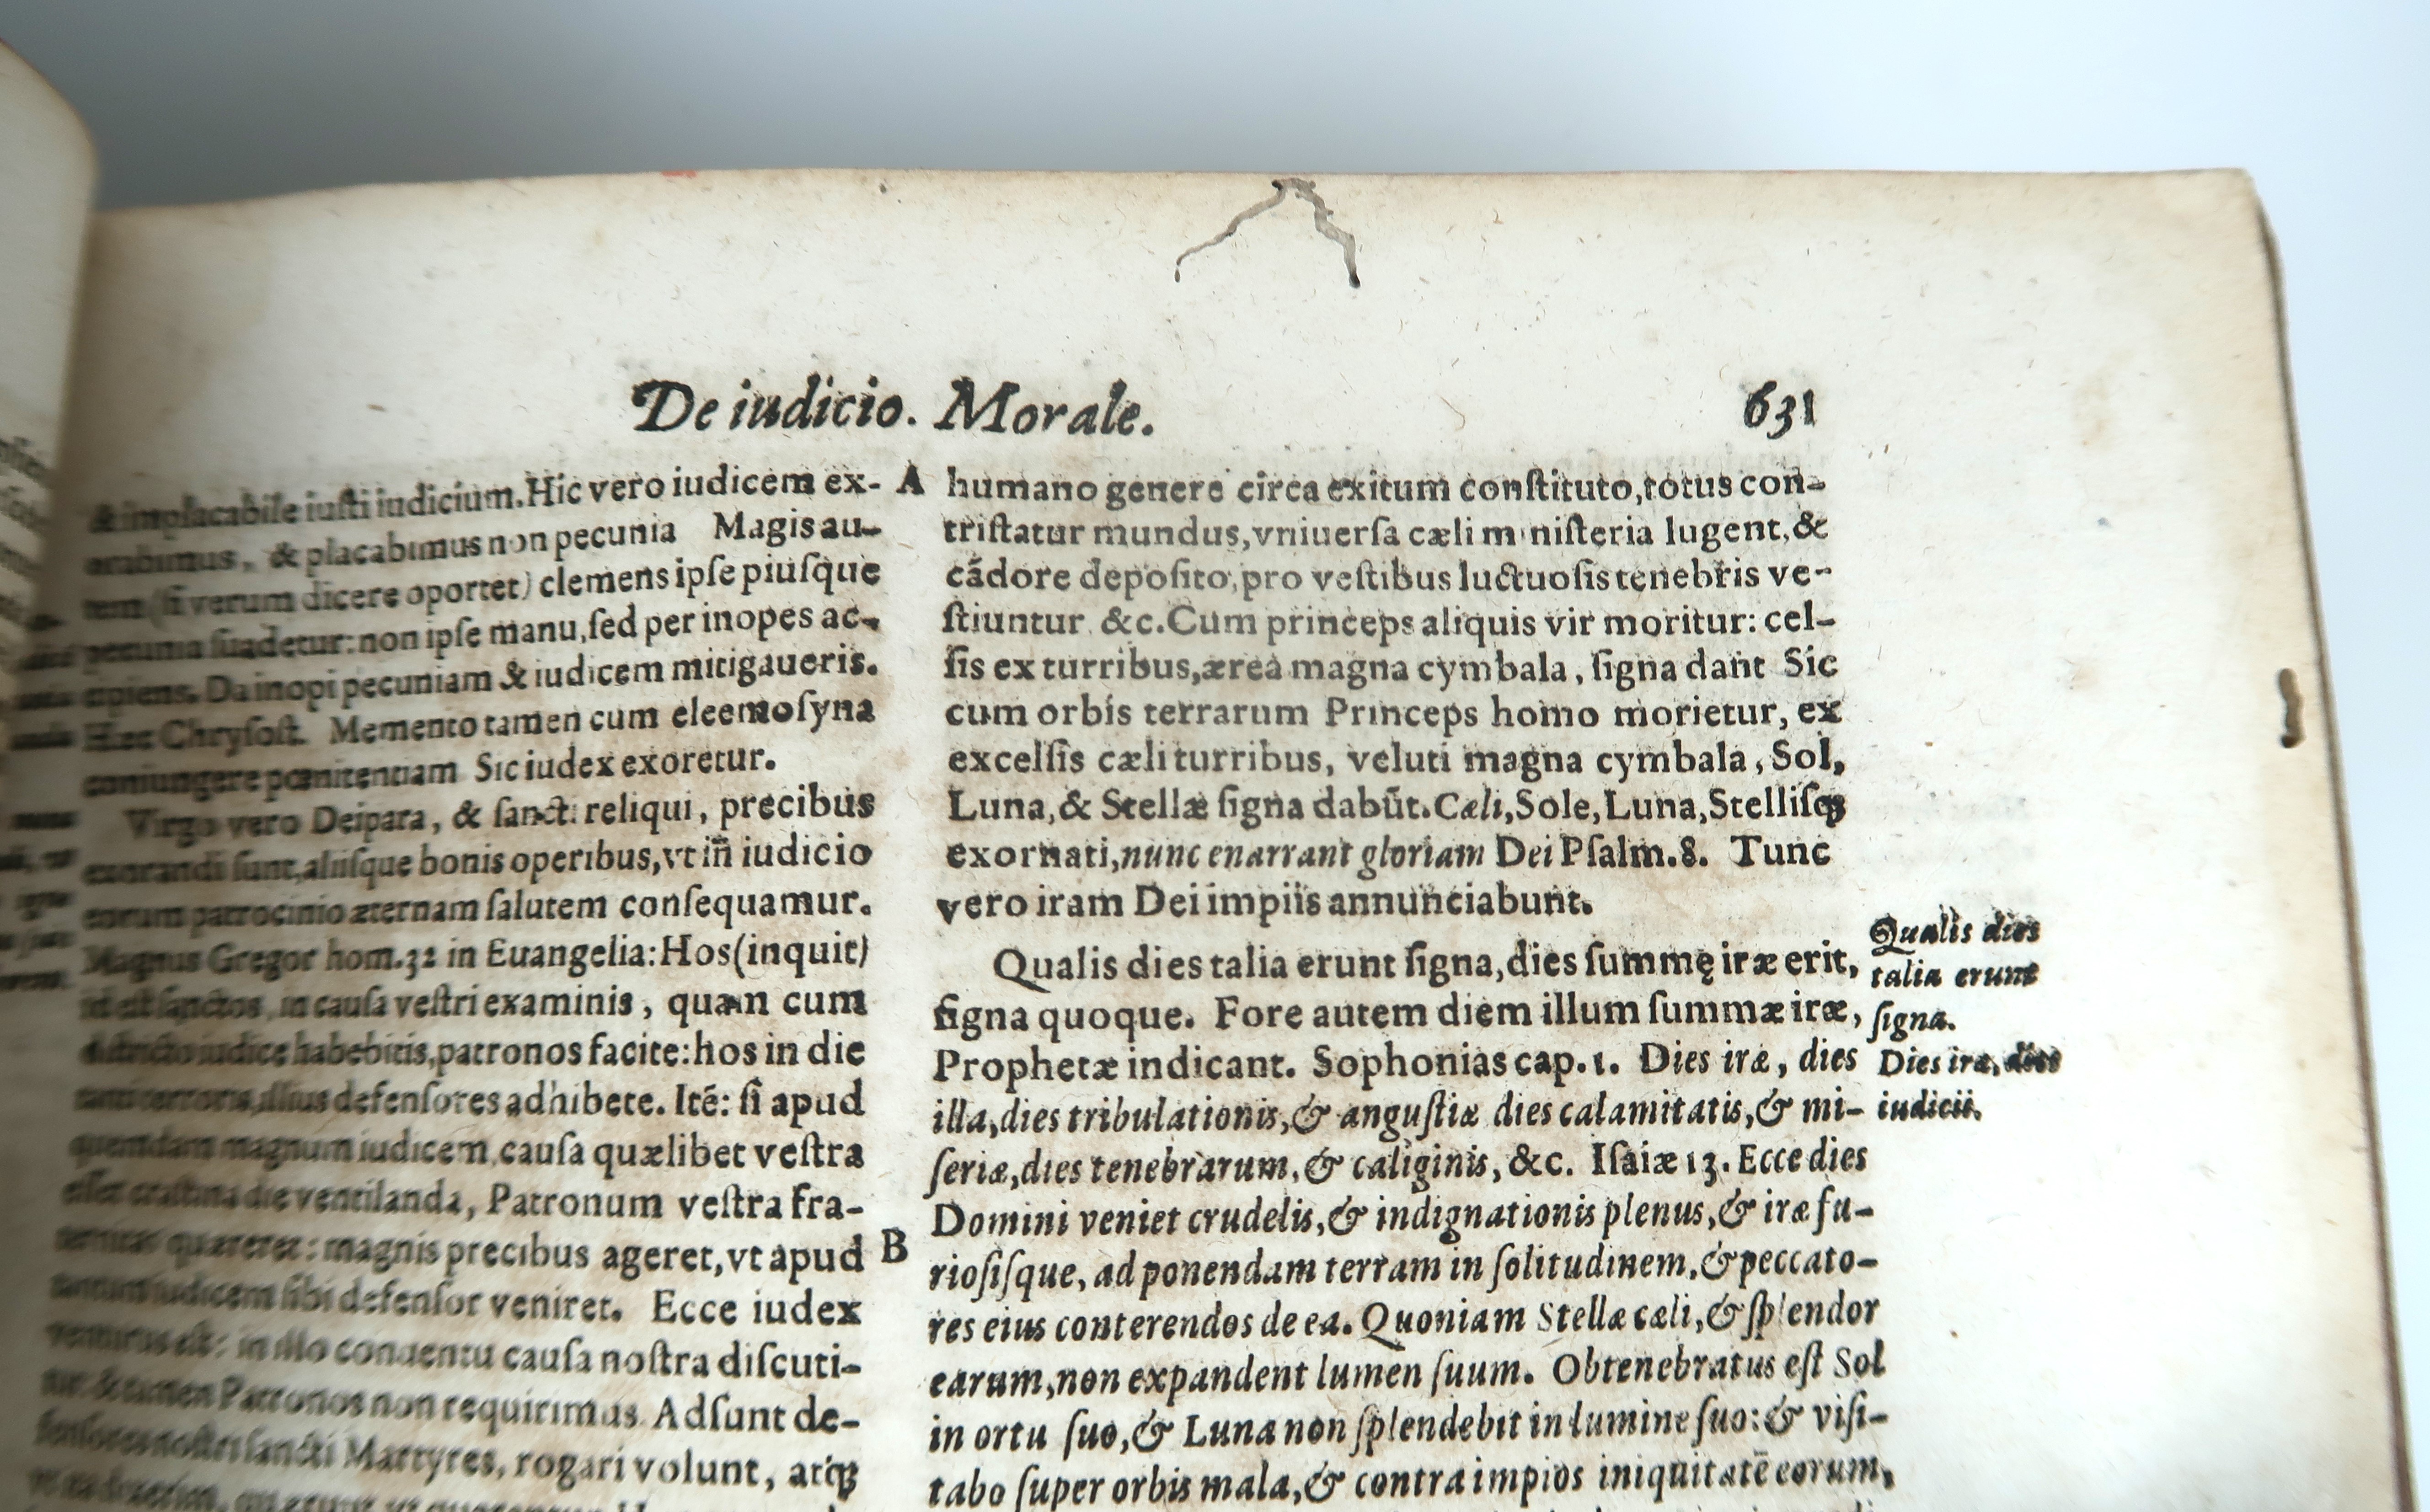 De iudicio. Morale. 631
& implacabile iusti iudicium. Hic vero iudicem ex-
orabimus, & placabimus non pecunia Magis au-
tem (si verum dicere oportet) clemens ipse piusque
pecunia suadetur: non ipse manu, sed per inopes ac-
cipiens. Da inopi pecuniam & iudicem mitigaueris.
Hæc Chrysost. Memento tamen cum eleemosyna
coniungere pœnitentiam Sic iudex exoretur.
Virgo vero Deipara, & sanct: reliqui, precibus
exorandi sunt, aliisque bonis operibus, vt iñ iudicio
eorum patrocinio æternam salutem consequamur.
Magnus Gregor hom. 32 in Euangelia: Hos (inquit)
id est sanctos, in causa vestri examinis, quam cum
districto iudice habebitis, patronos facite: hos in die
tanti terroris, illius defensores adhibete. Ité: si apud
quemdam magnum iudicem, causa quælibet vestra
esset crastina die ventilanda, Patronum vestra fra-
ternitas quæreret: magnis precibus ageret, vt apud
tantum iudicem sibi defensor veniret. Ecce iudex
venturus est: in illo conuentu causa nostra discuti-
tur & tamen Patronos non requirimus. Adsunt de-
fensores nostri sancti Martyres, rogari volunt, atq́;
A
B
humano genere circa exitum constituto, totus con-
tristatur mundus, vniuersa cæli m nisteria lugent, &
cādore deposito, pro vestibus luctuosis tenebris ve-
stiuntur &c. Cum princeps aliquis vir moritur: cel-
sis ex turribus, ærea magna cymbala, signa dant Sic
cum orbis terrarum Princeps homo morietur, ex
excelsis cæli turribus, veluti magna cymbala, Sol,
Luna, & Stellæ signa dabūt. Cæli, Sole, Luna, Stellisq;
exornati, nunc enarrant gloriam Dei Psalm. 8. Tunc
vero iram Dei impiis annunciabunt.
Qualis dies talia erunt signa, dies summę iræ erit,
signa quoque. Fore autem diem illum summæ iræ,
Prophetæ indicant. Sophonias cap. 1. Dies iræ, dies
illa, dies tribulationis, & angustiæ dies calamitatis, & mi-
seriæ, dies tenebrarum, & caliginis, &c. Isaiæ 13. Ecce dies
Domini veniet crudelis, & indignationis plenus, & iræ fu-
riosisque, ad ponendam terram in solitudinem, & peccato-
res eius conterendos de ea. Quoniam Stellæ cæli, & splendor
earum, non expandent lumen suum. Obtenebratus est Sol
in ortu suo, & Luna non splendebit in lumine suo: & visi-
tabo super orbis mala, & contra impios iniquitatē eorum,
Qualis dies
talia erunt
signa.
Dies iræ, dies
iudicii.